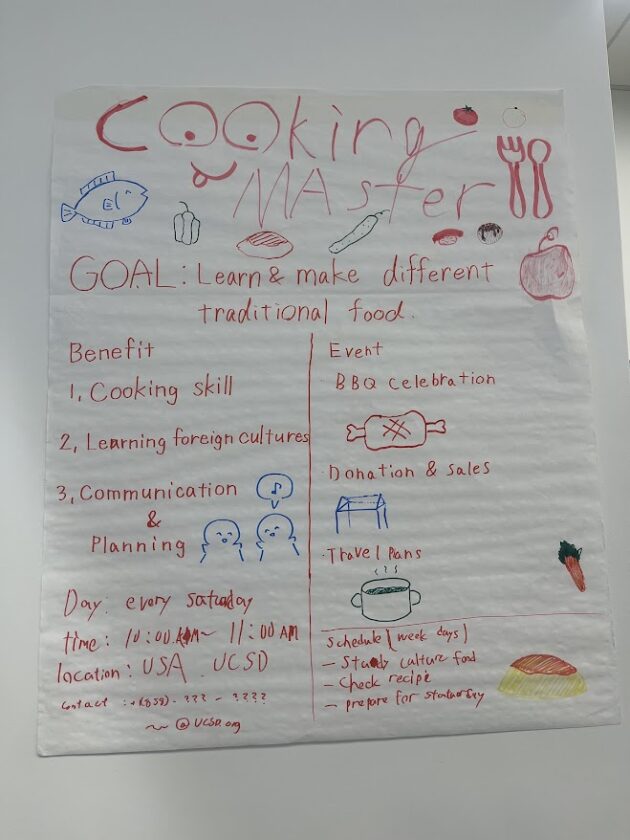 Cooking
MAster
GOAL: Learn & make different
traditional food.
Benefit
1, Cooking skill
2, Learning foreign cultures
3, Communication
&
Planning
Day: every saturday
time: 10:00 AM ~ 11:00 AM
location: USA. UCSD
contact : +1(858) - ??? - ????
~ @UCSD.org
Event
· BBQ celebration
· Donation & sales
· Travel Pans
Schedule (week days)
- Study culture food
- Check recipe
- prepare for